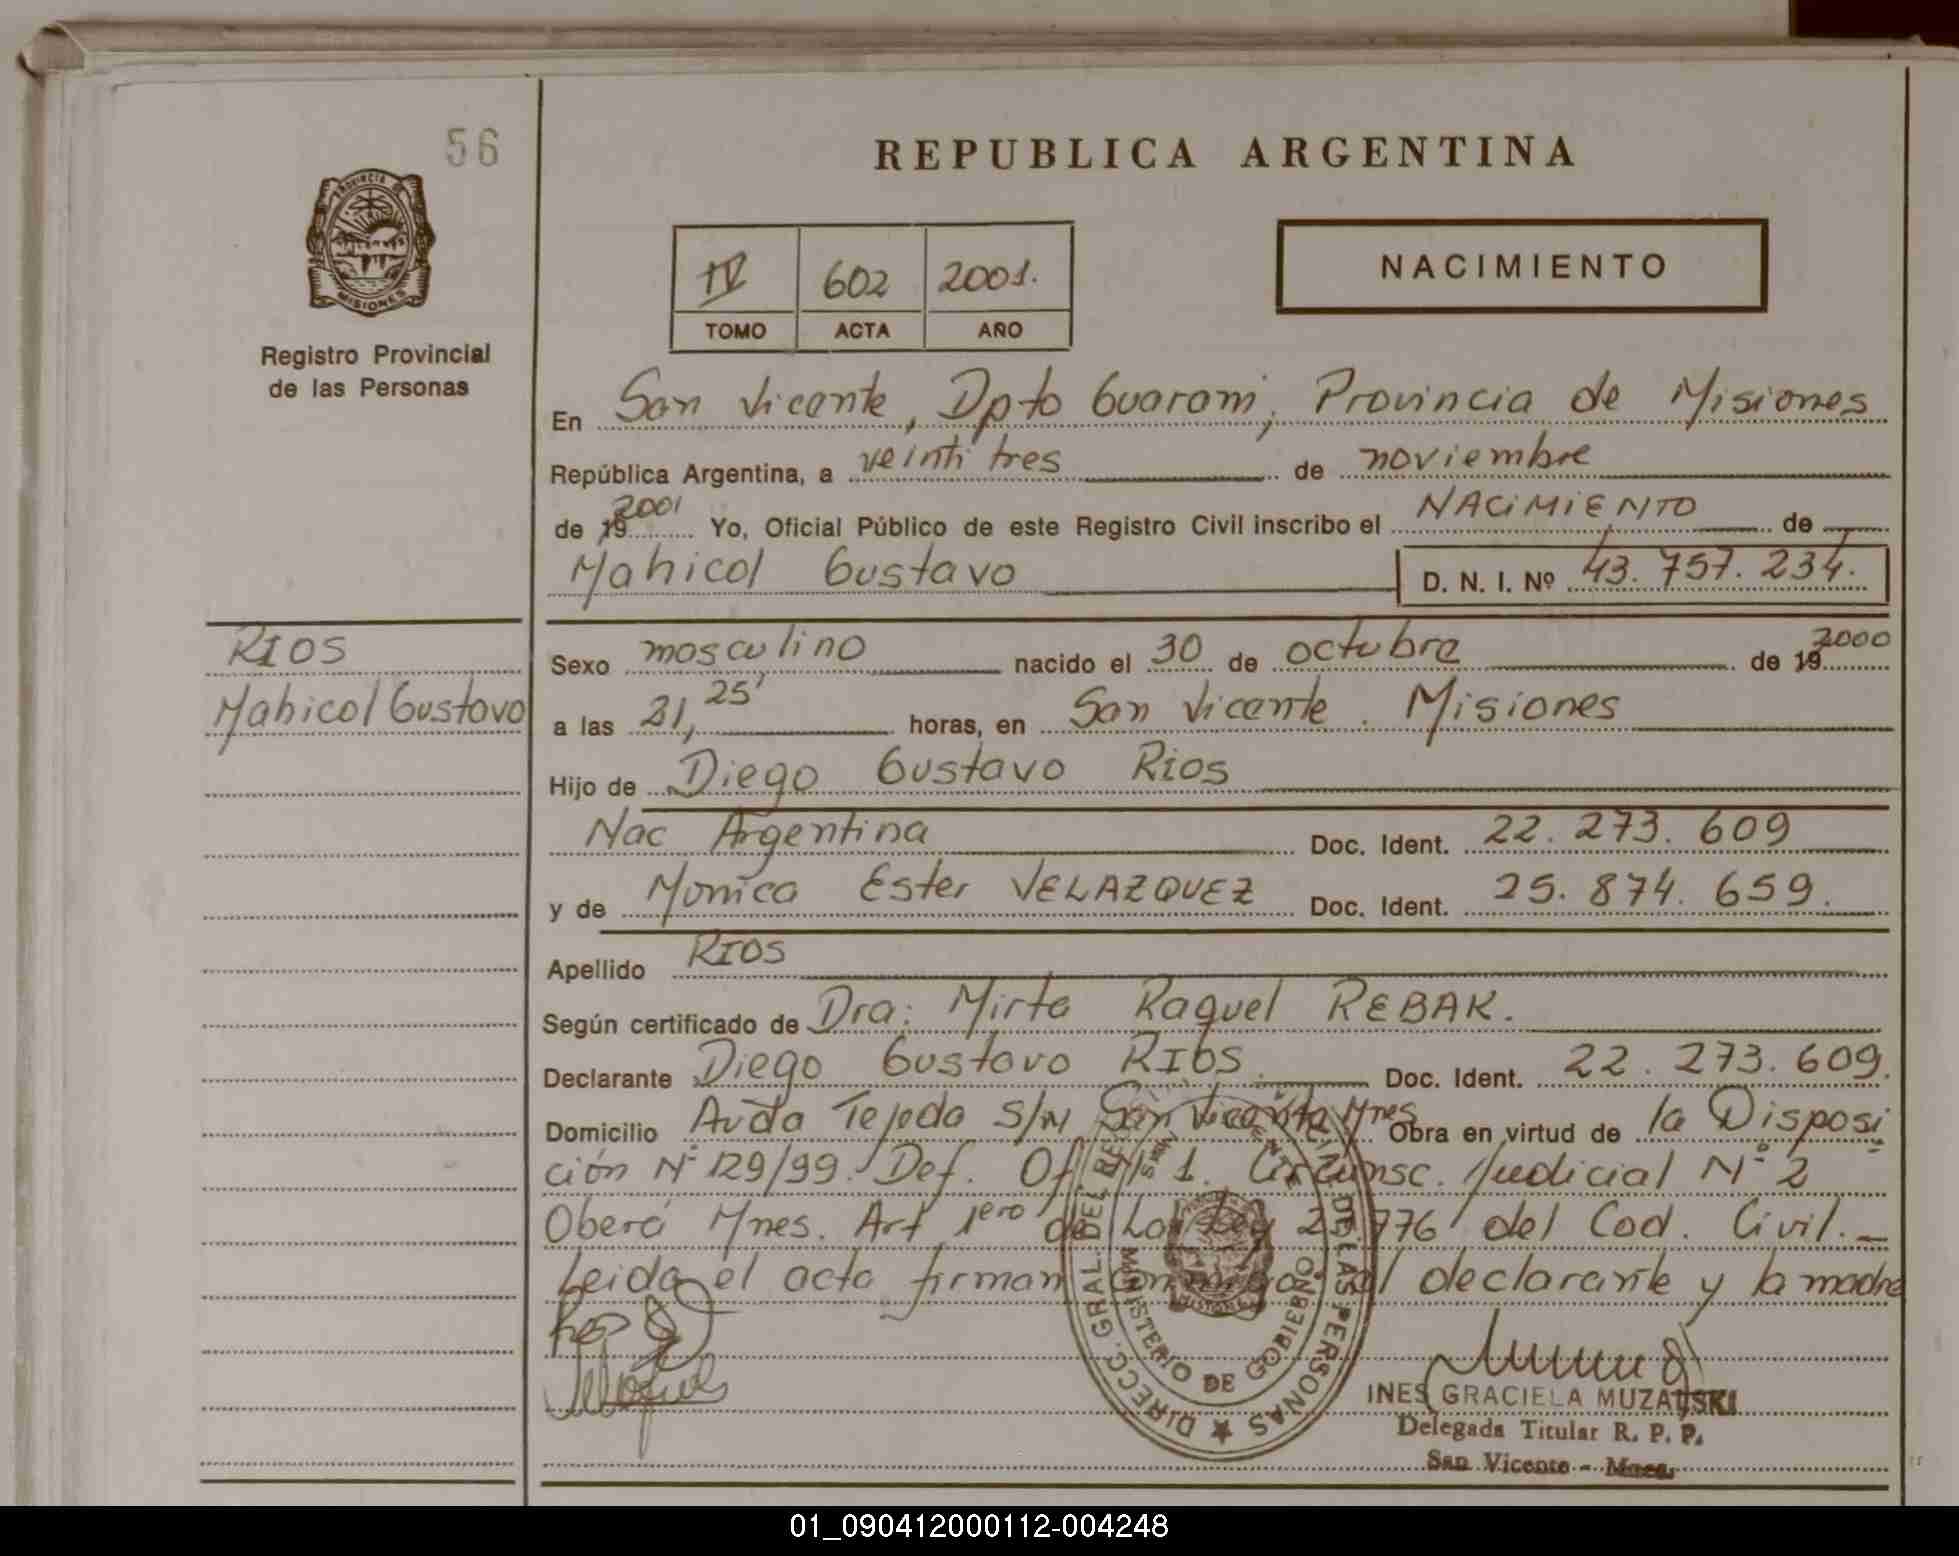 56
REPUBLICA ARGENTINA
PROVINCIA DE
MISIONES
Registro Provincial
de las Personas
IV 602 2001.
TOMO ACTA AÑO
NACIMIENTO
En San Vicente, Dpto Guarani, Provincia de Misiones
República Argentina, a veinti tres de noviembre
de 19 2001 Yo, Oficial Público de este Registro Civil inscribo el NACIMIENTO de
Mahicol Gustavo D. N. I. Nº 43.757.234.
RIOS
Mahicol Gustavo
Sexo masculino nacido el 30 de octubre de 19 2000
a las 21,25' horas, en San Vicente. Misiones
Hijo de Diego Gustavo Rios
Nac Argentina Doc. Ident. 22.273.609
y de Monica Ester VELAZQUEZ Doc. Ident. 25.874.659.
Apellido RIOS
Según certificado de Dra: Mirta Raquel REBAK.
Declarante Diego Gustavo RIOS Doc. Ident. 22.273.609.
Domicilio Avda Tejeda S/N San Vicente Mnes Obra en virtud de la Disposi
ción Nº 129/99. Def. Of. Nº 1. Circunsc. Judicial Nº 2
Oberá Mnes. Art 1ero de La Ley 776 del Cod. Civil.
Leida el acta firman conmigo el declarante y la madre
DIRECC. GRAL. DEL REG. DE LAS PERSONAS
MINISTERIO DE GOBIERNO
MISIONES
INES GRACIELA MUZALSKI
Delegada Titular R. P. P.
San Vicente - Mnes.
01_090412000112-004248